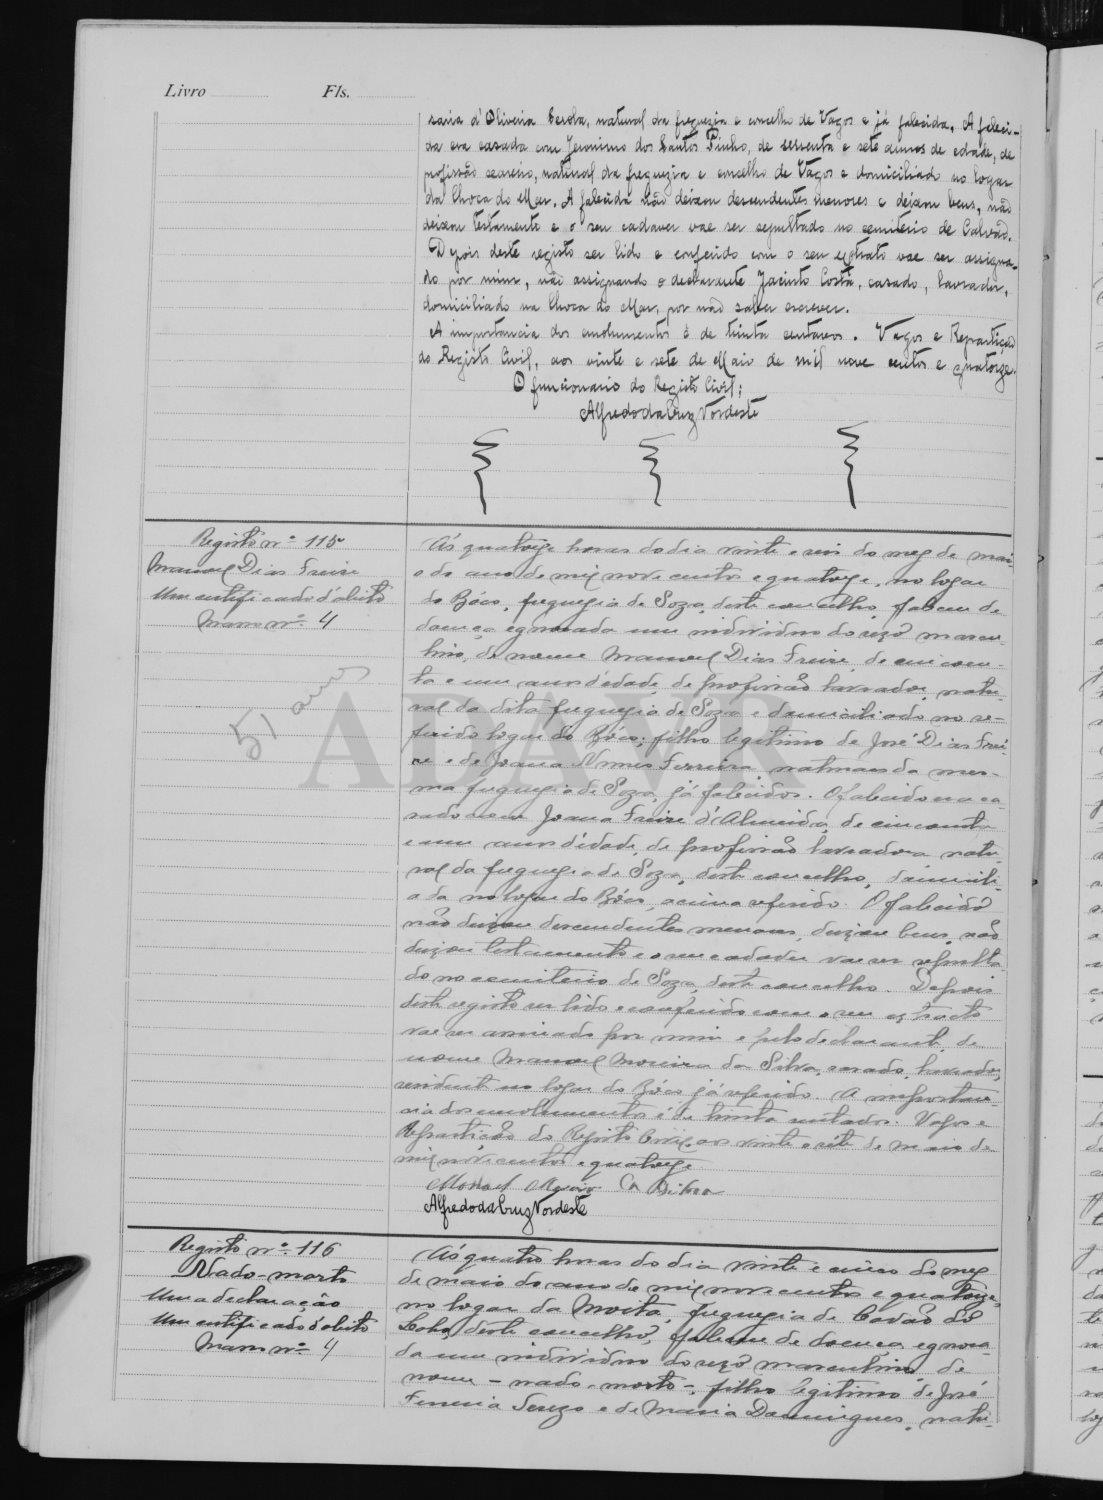 Livro Fls.
saria d'Oliveira Cerola, natural da freguezia e concelho de Vagos e já falecida. A faleci-
da era casada com Jeronimo dos Santos Pinho, de sessenta e sete annos de edade, de
profissão seareiro, natural da freguezia e concelho de Vagos e domiciliado no logar
da Choca do Mar. A falecida não deixou descendentes menores e deixou bens, não
deixou testamento e o seu cadaver vae ser sepultado no cemiterio de Calvão.
Depois deste registo ser lido e conferido com o seu extrato vae ser assigna-
do por mim, não assignando o declarante Jacinto Costa, casado, lavrador,
domiciliado na Choca do Mar, por não saber escrever.
A importancia dos emolumentos é de trinta centavos. Vagos e Repartição
do Registo Civil, aos vinte e sete de Maio de mil nove centos e quatorze.
O funcionario do Registo Civil:
Alfredo da Cruz Nordeste
Registo nº 115
Manoel Dias Freire
Um certificado d'obito
Março nº 4
51 anos
Ás quatorze horas do dia vinte e seis do mez de mai
o do ano de mil nove centos e quatorze, no logar
do Bôco, freguezia de Soza, deste concelho, faleceu de
doença egnorada um individuo do sexo mascu-
lino, de nome Manoel Dias Freire, de cincoen-
ta e um anos d'edade, de profissão lavrador, natu-
ral da dita freguezia de Soza e domiciliado no re-
ferido logar do Bôco; filho legitimo de José Dias Frei-
re e de Joana Nunes Ferreira, naturaes da mes-
ma freguezia de Soza, já falecidos. O falecido era ca-
sado com Joana Freire d'Almeida, de cincoenta
e um anos d'edade, de profissão lavradora, natu-
ral da freguezia de Soza, deste concelho, domicili-
ada no logar do Bôco, acima referido. O falecido
não deixou descendentes menores, deixou bens, não
deixou testamento e o seu cadaver vae ser sepulta-
do no cemiterio de Soza, deste concelho. Depois
deste registo ser lido e conferido com o seu extracto
vae ser assinado por mim e pelo declarante, de
nome Manoel Moreira da Silva, casado, lavrador,
residente no logar do Bôco já referido. A importan-
cia dos emolumentos é de trinta centavos. Vagos e
Repartição do Registo Civil, aos vinte e sete de maio de
mil nove centos e quatorze
Manoel
Alfredo da Cruz Nordeste
ADAVR
Registo nº 116
Nado-morto
Uma declaração
Um certificado d'obito
Março nº 4
Ás quatro horas do dia vinte e cinco do mez
de maio do ano de mil nove centos e quatorze,
no logar da Moita, freguezia de Covão do
Lobo, deste concelho, faleceu de doença egnora-
da um individuo do sexo masculino de
nome - nado-morto -, filho legitimo de José
Ferreira e de Maria Domingues, natu-